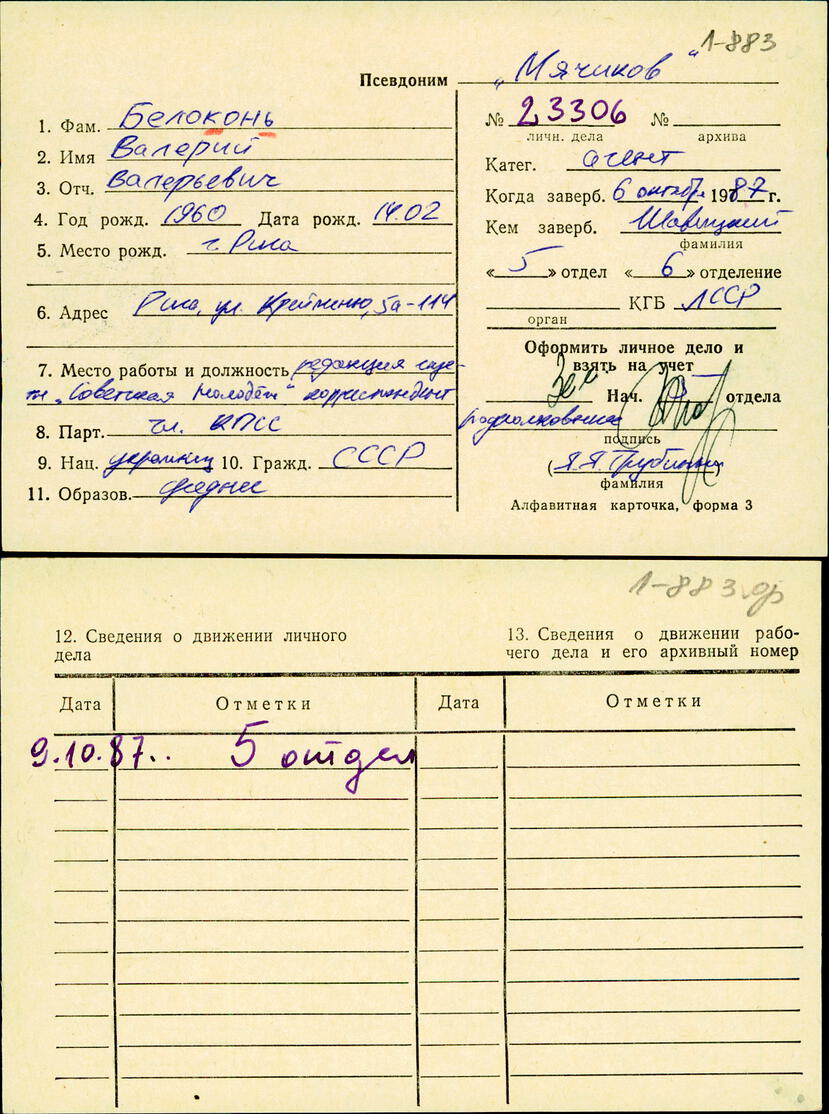 1-883
Псевдоним „Мячиков“
1. Фам. Белоконь
2. Имя Валерий
3. Отч. Валерьевич
4. Год рожд. 1960 Дата рожд. 14.02
5. Место рожд. г. Рига
6. Адрес Рига, ул. 5а-114
7. Место работы и должность редакция газе-
ты „Советская молодёжь“ корреспондент
8. Парт. чл. КПСС
9. Нац. украинец 10. Гражд. СССР
11. Образов. среднее
№ 23306 №
личн. дела архива
Катег. агент
Когда заверб. 6 октября 1987 г.
Кем заверб. Шавецкий
фамилия
«5» отдел «6» отделение
КГБ ЛССР
орган
Оформить личное дело и
взять на учет
Зам Нач. 5 отдела
подполковник
подпись
(Я.Я. )
фамилия
Алфавитная карточка, форма 3
1-883
12. Сведения о движении личного
дела
13. Сведения о движении рабо-
чего дела и его архивный номер
Дата Отметки Дата Отметки
9.10.87.. 5 отдел